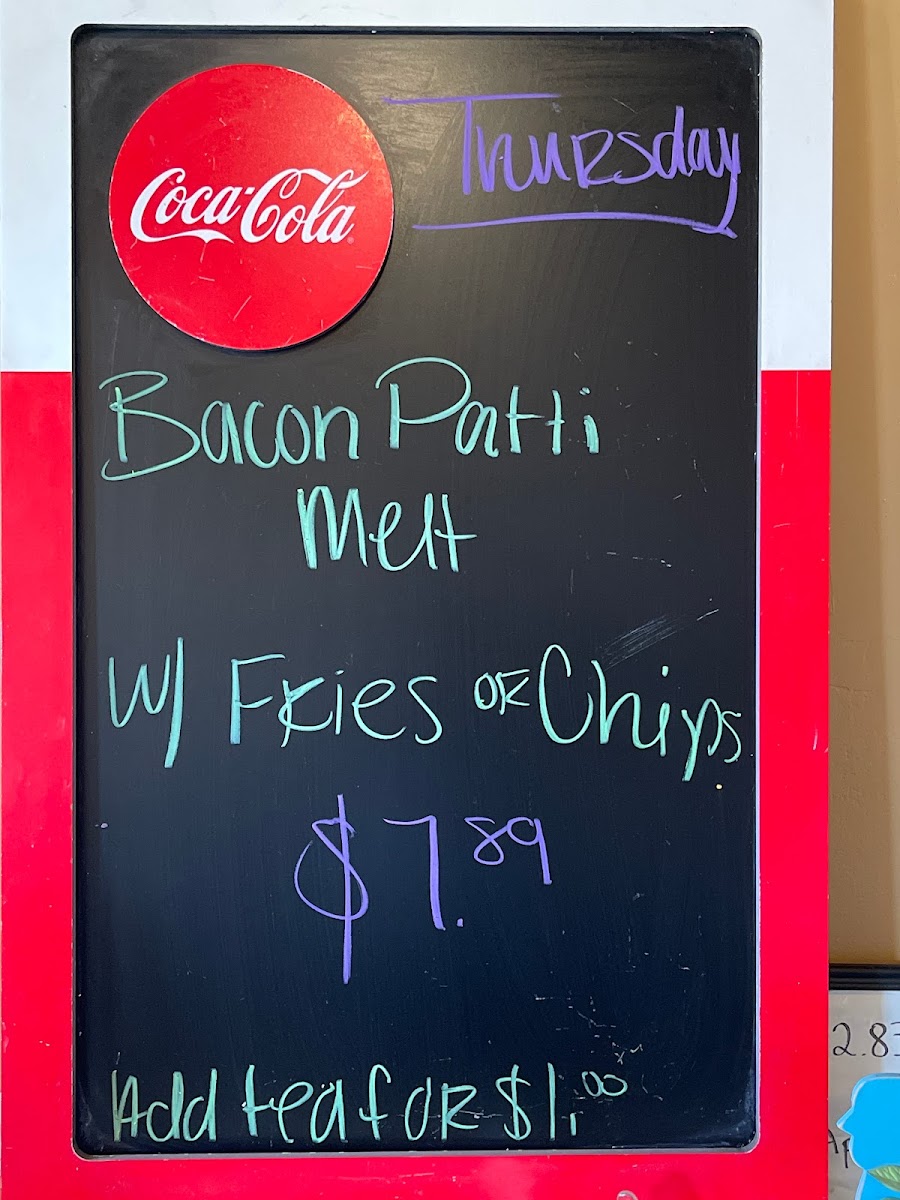 Coca-Cola
Thursday
Bacon Patti
Melt
W/ Fries or Chips
$7.89
Add tea for $1.00
2.83